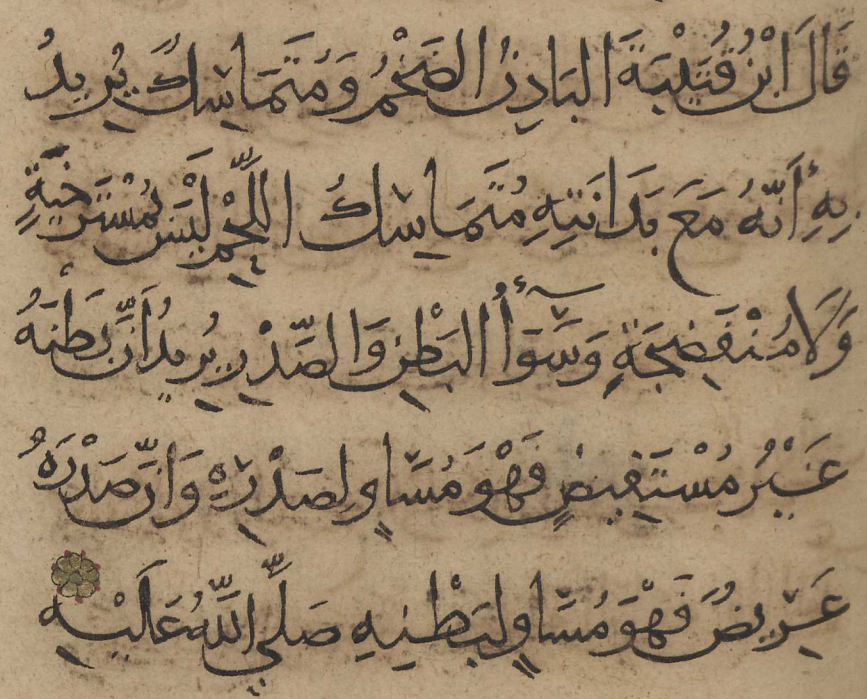 قَالَ ابْنُ قُتَيْبَةَ البَادِنُ الضَخْمُ وَمُتَمَاسِكٌ يُرِيدُ
بِهِ أَنَّهُ مَعَ بَدَانَتِهِ مُتَمَاسِكُ اللَّحْمِ لَيْسَ بِمُسْتَرْخِيَةٍ
وَلَا مُنْفَضِجَةٍ وَسَوَآءُ البَطْنِ وَالصَّدْرِ يُرِيدُ أَنَّ بَطْنَهُ
غَيْرُ مُسْتَفِيضٍ فَهْوَ مُسَاوٍ لِصَدْرِهِ وَأَنَّ صَدْرَهُ
عَرِيضٌ فَهْوَ مُسَاوٍ لِبَطْنِهِ صَلَّى اللَّهُ عَلَيْهِ